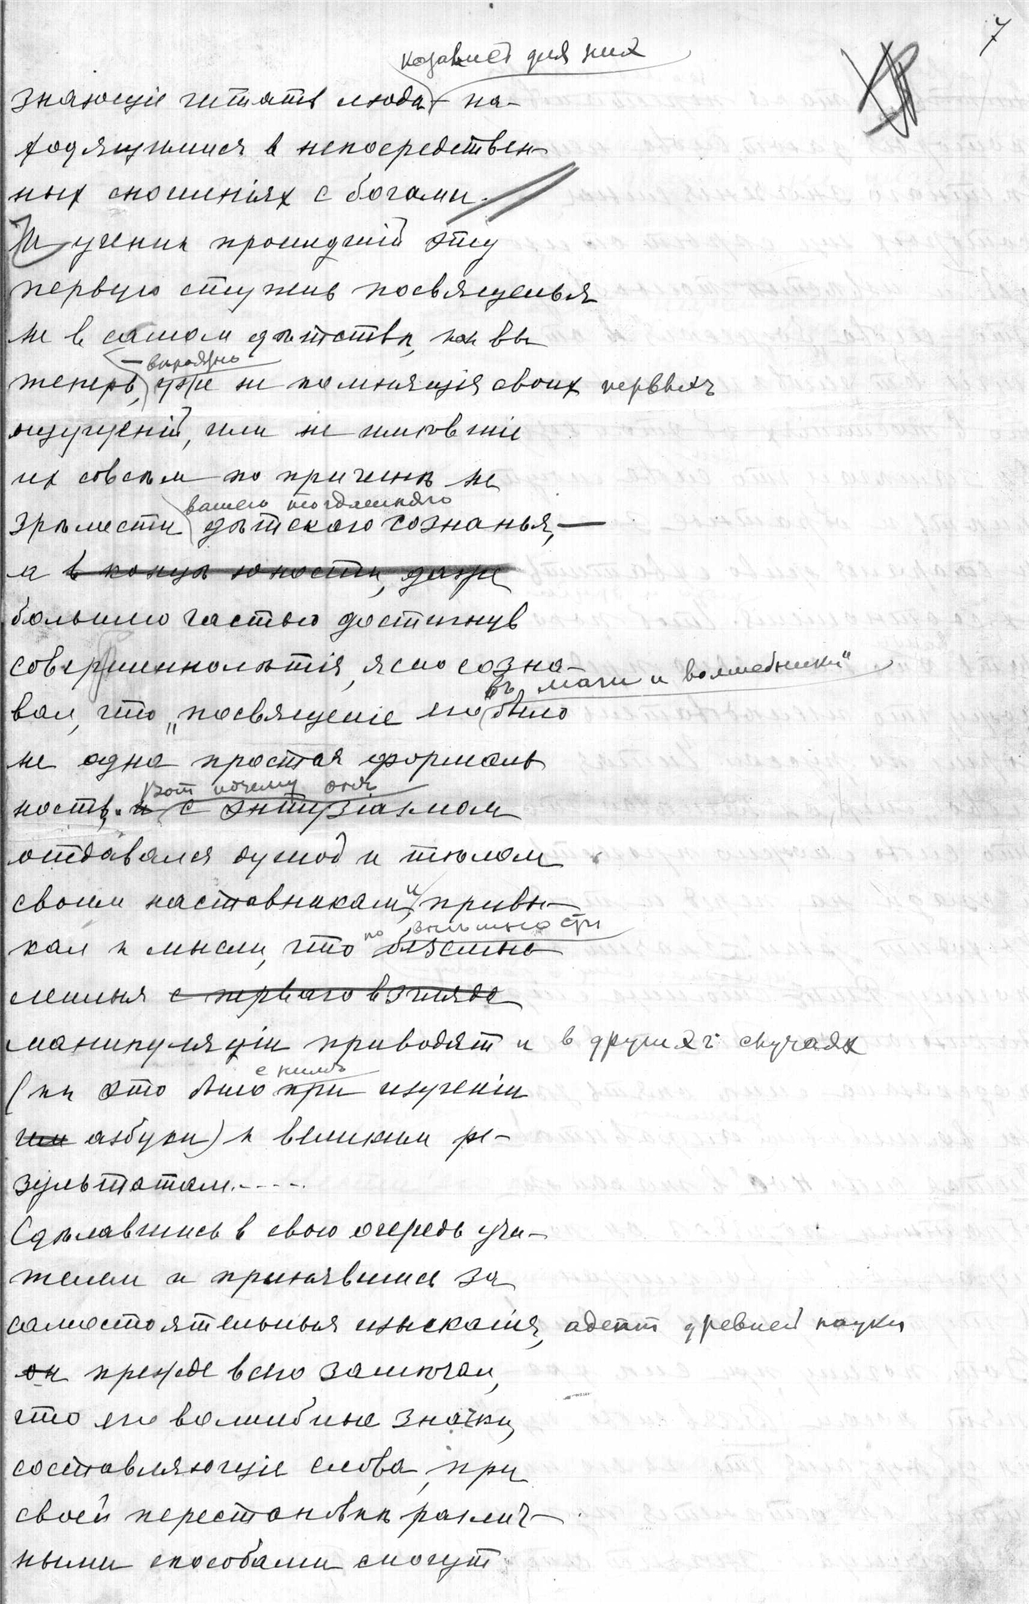 7
казались для них
знающіе читать люда на-
ходящимися в непосредствен
ных сношеніях с богами.
И ученик прошедшій эту
первую ступень посвященья
не в самом дѣтствѣ, как вы
вѣроятно
теперь, уже не помнящія своих первыхъ
ощущеній, или не имѣвшіе
их совсѣм по причинѣ не
вашего тогдашняго
зрѣлости дѣтскаго сознанья, —
а в концѣ юности, даже
большею частью достигнув
совершеннолѣтія, ясно созна-
въ „маги и волшебники“
вал, что „посвященіе его было
не одна простая формаль
вот почему онъ
ность. и с энтузіазмом
отдавался душой и тѣлом
своим наставникам и привы-
по внѣшности
кал к мысли, что безсмыс
ленныя с перваго взгляда
манипуляціи приводят и в других случаях
с нимъ
(как это было при изученіи
им азбуки) к великим ре-
зультатам.....
Сдѣлавшись в свою очередь учи-
телем и принявшись за
самостоятельныя изысканія, адепт древней науки
он прежде всего замечал,
что его волшебные значки,
составляющіе слова, при
своей перестановкѣ различ-
ными способами смогут